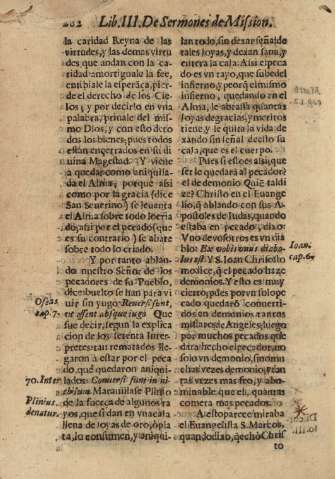 202 Lib.III. De Sermones de Mission.
la caridad Reyna de las
virtudes, y las demàs virtu
des que andan con la ca
ridad amortiguale la fee,
entibiale la esperãça, pier-
de el derecho de los Cie
los; y por decirlo en vna
palabra, privale del mis-
mo Dios, y con esto de to
dos los bienes, pues todos
estàn encerrados en su di
vina Magestad. Y viene
a quedar como aniquila-
da el Alma; porque assi
como por la gracia (dice
San Severino) se levanta
el Alma sobre todo lo cria
do; assi por el pecado (que
es su contrario) se abate
sobre todo lo criado.
Y por tanto ablan-
do nuestro Señor de los
pecadores de su Pueblo,
de
se han para vi
vir sin yugo: Reversi sunt,
ut essent absque iugo. Que
fue decir, segun la explica
cion de los setenta Inter-
pretes: tan rematados lle-
garon à estar por el peca
do, què quedaron aniqui-
lados: Conversi sunt in ni-
hilum. Maravillase Plinio
de la fuerça de algunos ra
yos, que si dan en vna cava
llena de joyas de oro, ò pla
ta, lo consumen, y aniqui-
Oseas
cap. 7.
70. Inter
Plinius
denatur.
lan todo, sin dexar señal de
tales joyas, y dexan sana, y
entera la caja. Assi el peca
do es vn rayo, que sube del
infierno, y peor q̃ el mismo
infierno, quedando en el
Alma, le abrasa quantas
joyas de gracias, y meritos
tiene, y le quita la vida, de
xando sin señal de esso la
caja, que es el cuerpo.
Pues si esto es assi, que
ser le quedarà al pecador?
el de demonio Quiẽ tal di
ce? Christo en el Evange
lio, q̃ ablando con sus A-
postoles de Judas, quando
estaba en pecado, dixo.
Vno de vosotros es vn dia
blo: Ex vobis unus diabo-
lus est. Y S. Ioan Chrisosto
mo dice, q̃ el pecado haze
demonios. Y esto es muy
cierto, pues por vn solo pe
cado quedarõ converti-
dos en demonios tantos
millares de Angeles, luego
por muchos pecados se
darà hecho el pecador, no
solo vn demonio, sino mu
chas vezes demonio, y tan
tas vezes mas feo, y abo-
minable que el, quantas
comete mas pecados.
A esto parece miraba
el Evangelista S. Marcos,
quando dixo, q̃ echò Chris
to
Ioan.
cap. 6.